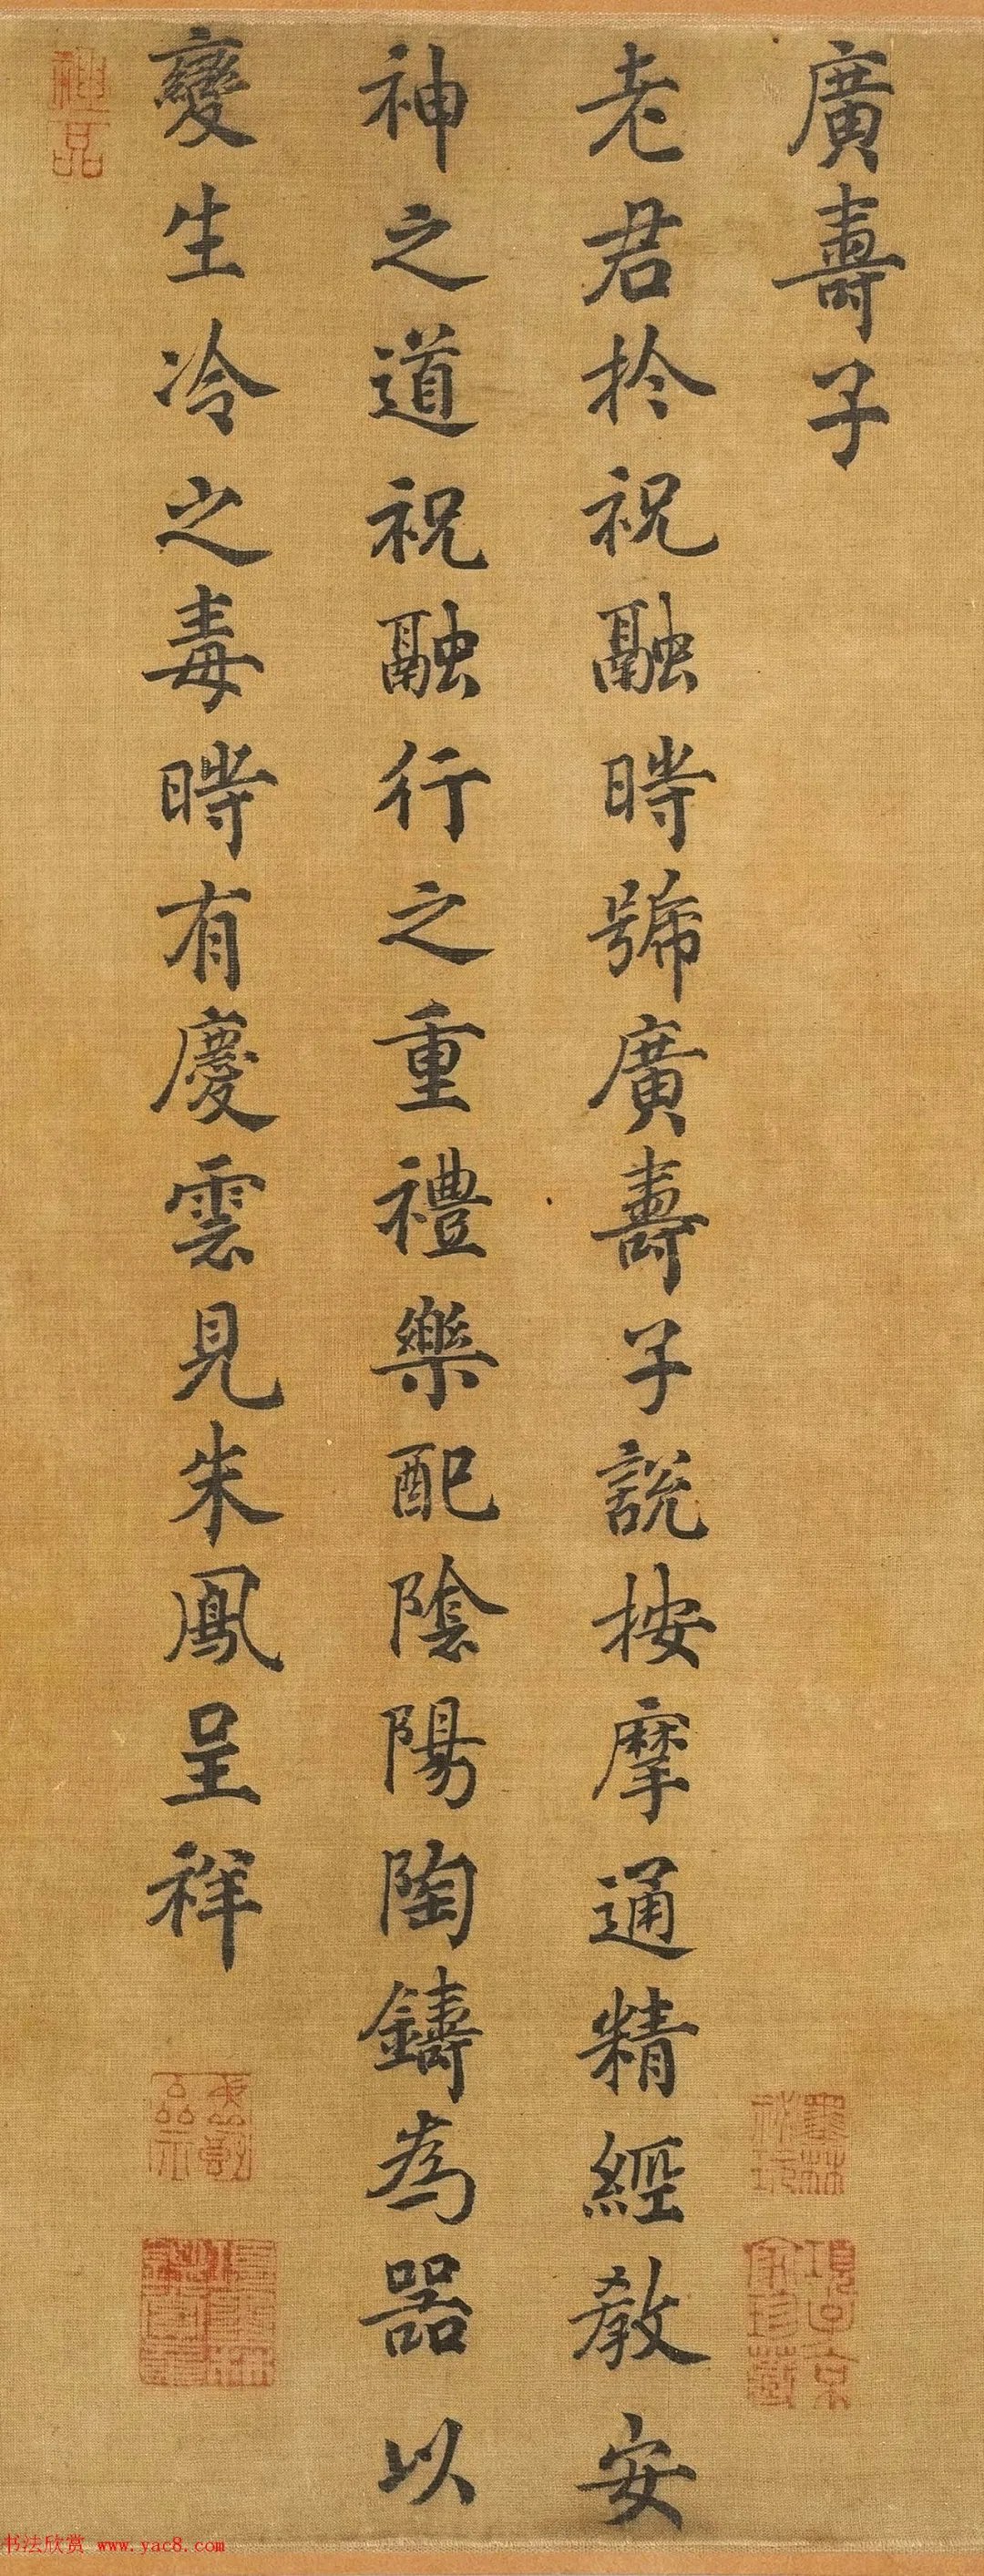 廣壽子
老君於祝融時號廣壽子說按摩通精經教安
神之道祝融行之重禮樂配陰陽陶鑄為器以
變生冷之毒時有慶雲見朱鳳呈祥
神品
項子京家珍藏
书法欣赏 www.yac8.com